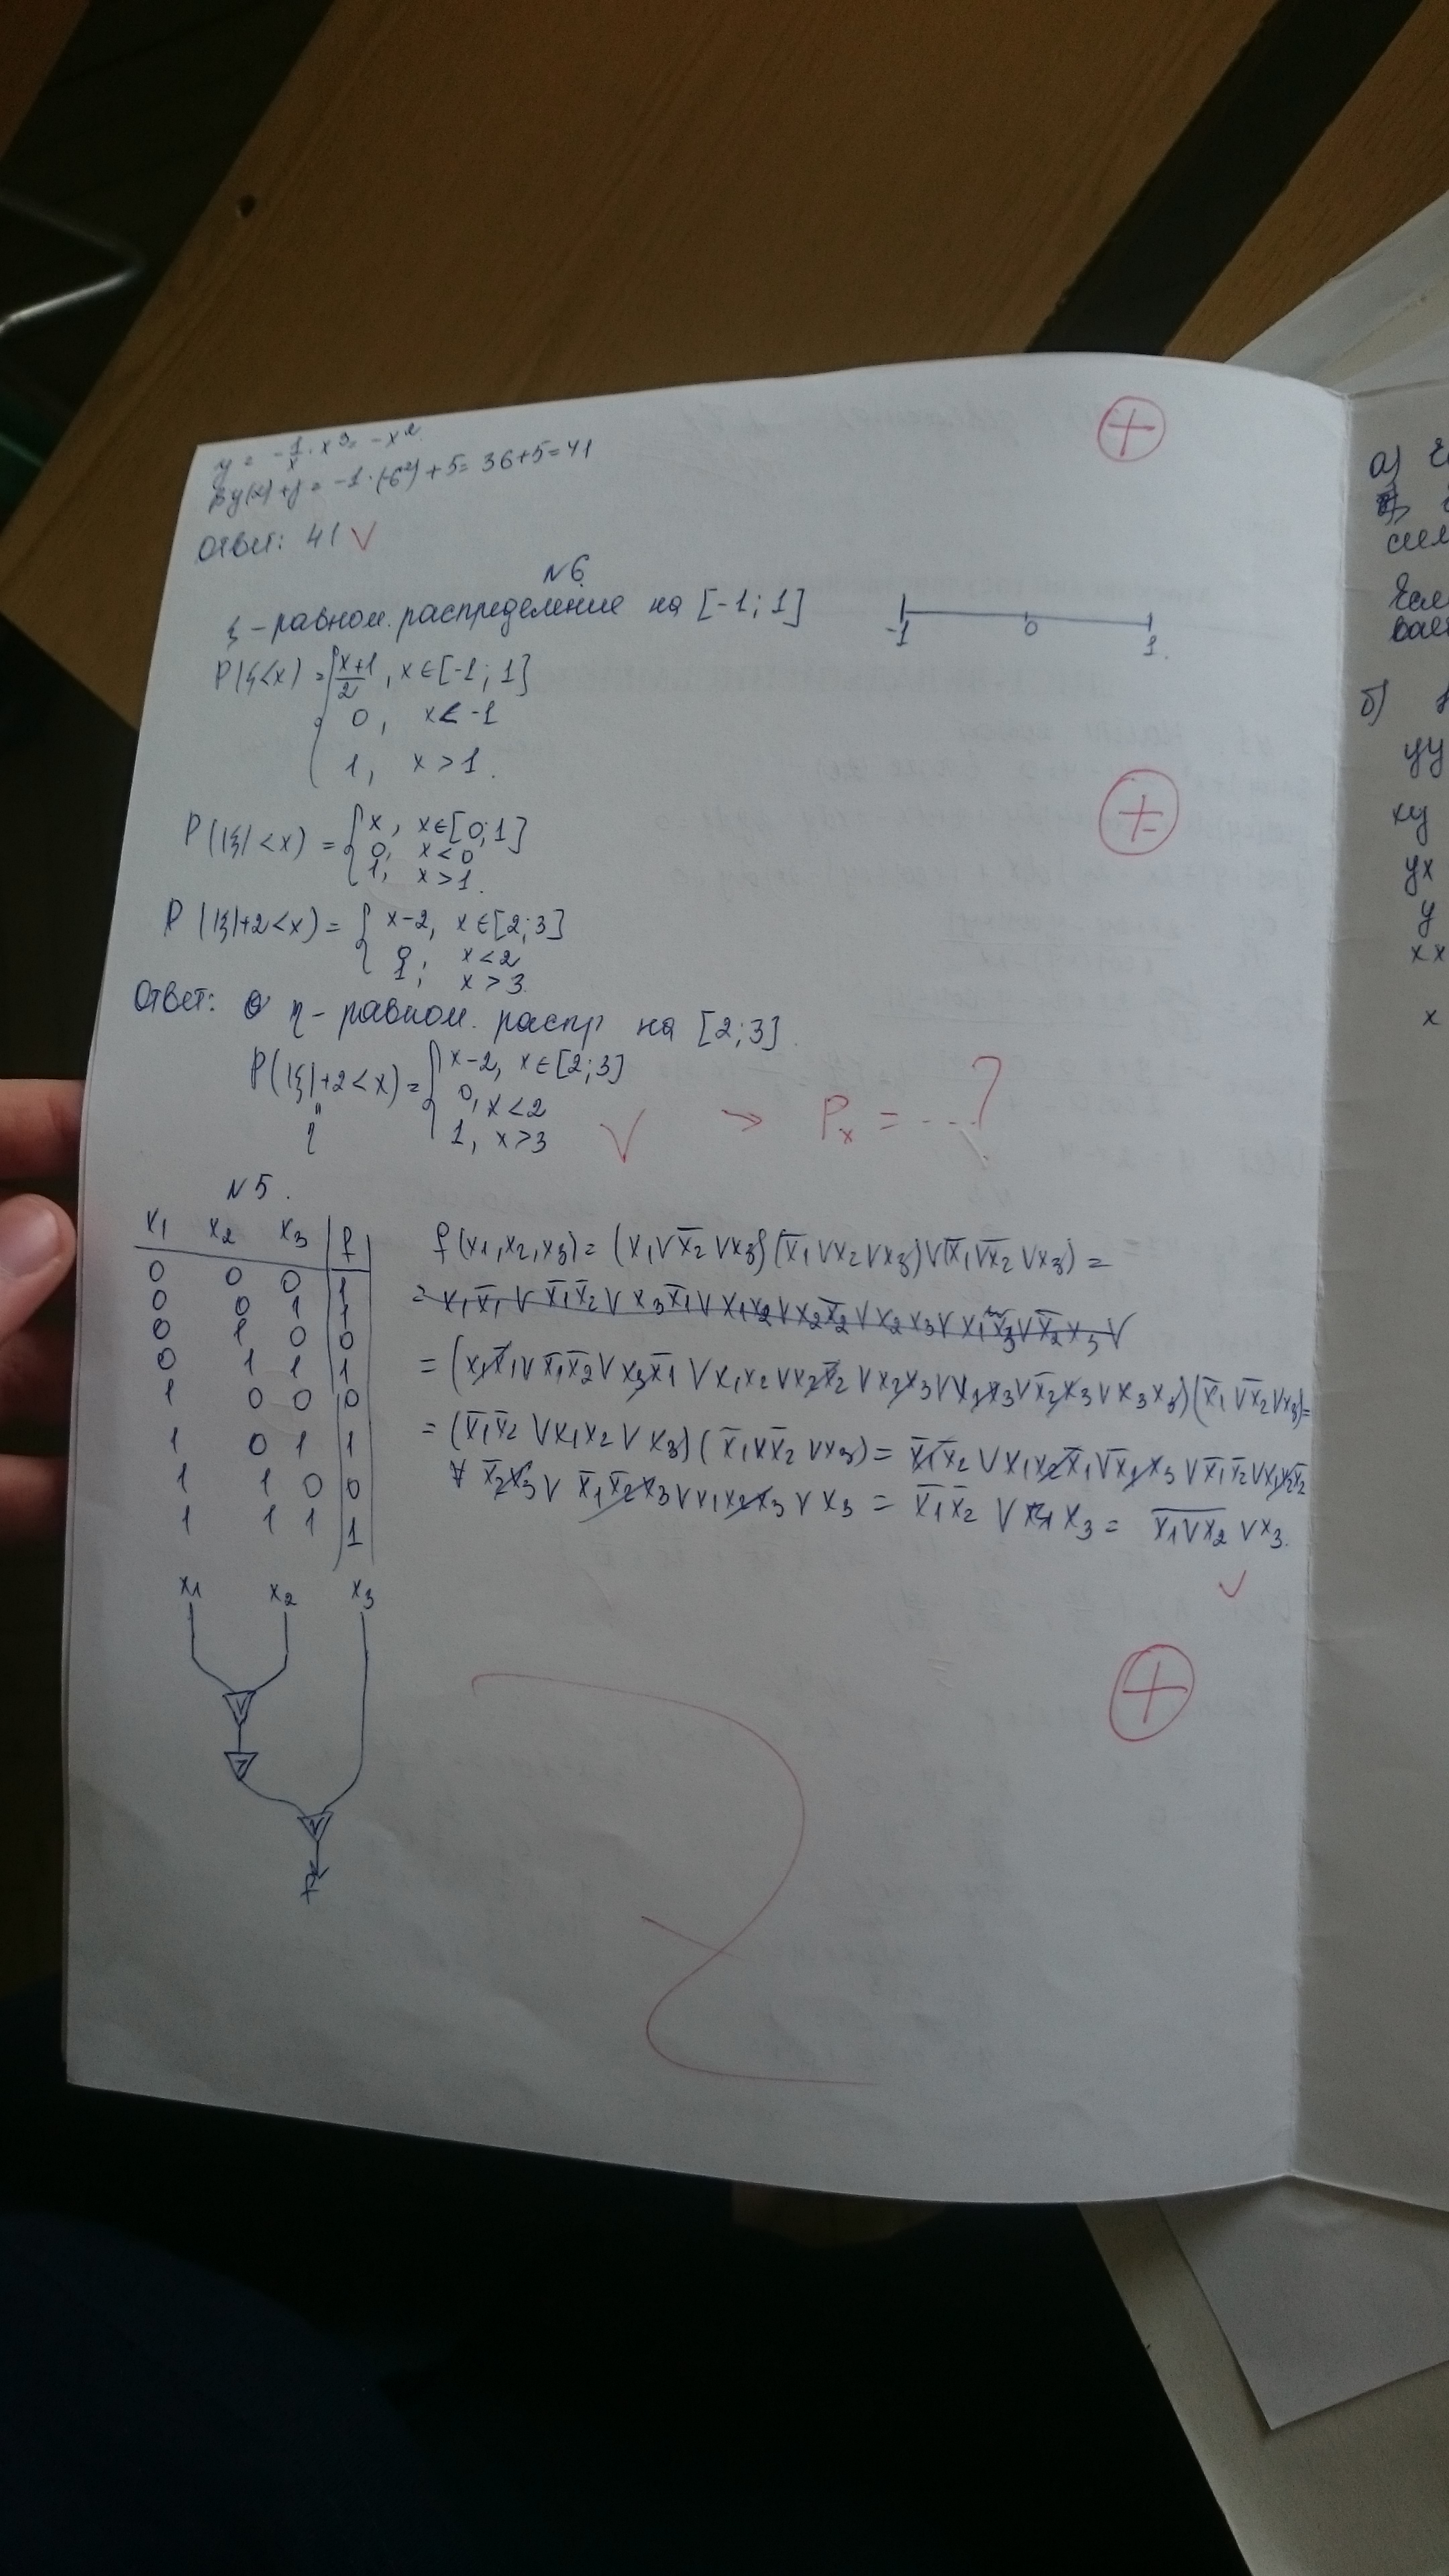 y = -1/x · x³ = -x²
βy(x)+γ = -1·(-6²)+5 = 36+5=41
Ответ: 41 √
№6
ξ - равном. распределение на [-1; 1]
-1 0 1.
P(ξ<x) = { x+1/2, x∈[-1; 1]
0, x< -1
1, x>1.
P(|ξ|<x) = { x, x∈[0;1]
0, x<0
1, x>1.
P(|ξ|+2<x) = { x-2, x∈[2;3]
0, x<2
1, x>3
Ответ: η - равном. распр на [2;3].
P(|ξ|+2<x) = { x-2, x∈[2;3]
0, x<2
1, x>3
η
√ → Pₓ = ...?
№5.
x₁ x₂ x₃ f
0 0 0 1
0 0 1 1
0 1 0 0
0 1 1 1
1 0 0 0
1 0 1 1
1 1 0 0
1 1 1 1
f(x₁,x₂,x₃) = (x₁∨x̄₂∨x₃)(x̄₁∨x₂∨x₃)∨(x̄₁∨x̄₂∨x₃) =
= x₁x̄₁∨x̄₁x̄₂∨x₃x̄₁∨x₁x₂∨x₂x̄₂∨x₂x₃∨x₁x₃∨x̄₂x₃∨
= (x₁x̄₁∨x̄₁x̄₂∨x₃x̄₁∨x₁x₂∨x₂x̄₂∨x₂x₃∨x₁x₃∨x̄₂x₃∨x₃x₃)(x̄₁∨x̄₂∨x₃)=
= (x̄₁x̄₂∨x₁x₂∨x₃)(x̄₁∨x̄₂∨x₃) = x̄₁x̄₂∨x₁x₂x̄₁∨x̄₁x₃∨x̄₁x̄₂∨x₁x₂x̄₂
∨ x̄₂x₃∨x̄₁x̄₂x₃∨x₁x₂x₃∨x₃ = x̄₁x̄₂∨x₃ = x̅₁̅∨̅x̅₂̅∨x₃.
√
x₁ x₂ x₃
∨
¬
∨
f